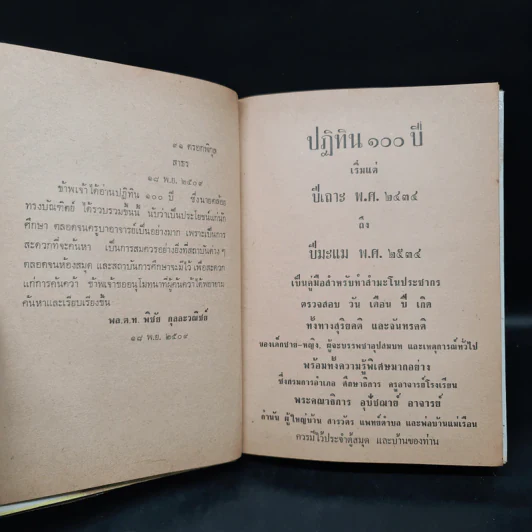 ๙๑ ตรอกพิกุล
สาธร
๑๘ พ.ย. ๒๕๐๙
ข้าพเจ้าได้อ่านปฏิทิน ๑๐๐ ปี ซึ่งนายคล้อย
ทรงบัณฑิตย์ ได้รวบรวมขึ้นนี้ นับว่าเป็นประโยชน์แก่นัก
ศึกษา ตลอดจนครูบาอาจารย์เป็นอย่างมาก เพราะเป็นการ
สะดวกที่จะค้นหา เป็นการสมควรอย่างยิ่งที่สถาบันต่าง ๆ
ตลอดจนห้องสมุด และสถาบันการศึกษาจะมีไว้ เพื่อสะดวก
แก่การค้นคว้า ข้าพเจ้าขออนุโมทนาที่ผู้ค้นคว้าได้พยายาม
ค้นหาและเรียบเรียงขึ้น
พล.ต.ท. พิชัย กุลละวณิชย์
๑๘ พ.ย. ๒๕๐๙
ปฏิทิน ๑๐๐ ปี
เริ่มแต่
ปีเถาะ พ.ศ. ๒๔๓๔
ถึง
ปีมะแม พ.ศ. ๒๕๓๔
เป็นคู่มือสำหรับทำสำมะโนประชากร
ตรวจสอบ วัน เดือน ปี เกิด
ทั้งทางสุริยคติ และจันทรคติ
ของเด็กชาย-หญิง, ผู้จะบรรพชาอุปสมบท และเหตุการณ์ทั่วไป
พร้อมทั้งความรู้พิเศษมากอย่าง
ซึ่งกรมการอำเภอ ศึกษาธิการ ครูอาจารย์โรงเรียน
พระคณาธิการ อุปัชฌาย์ อาจารย์
กำนัน ผู้ใหญ่บ้าน สารวัตร แพทย์ตำบล และพ่อบ้านแม่เรือน
ควรมีไว้ประจำตู้สมุด และบ้านของท่าน